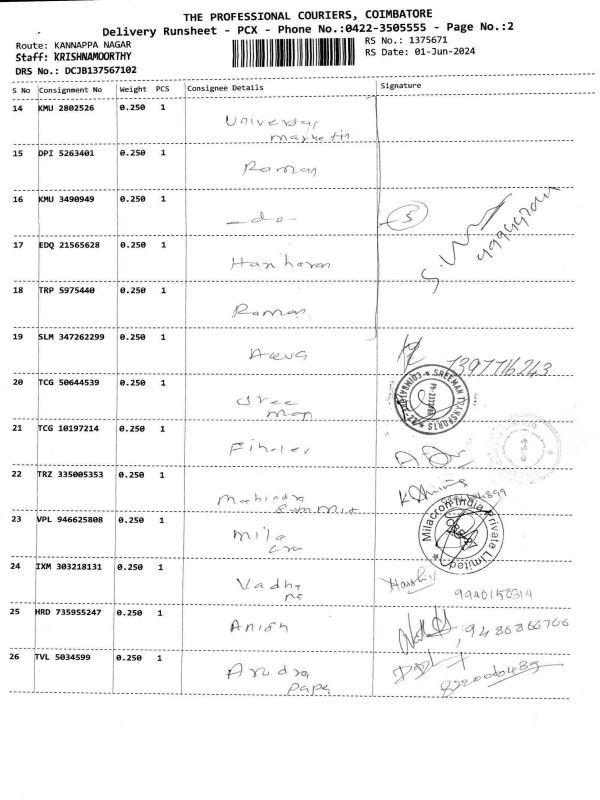 THE PROFESSIONAL COURIERS, COIMBATORE
Delivery Runsheet - PCX - Phone No.:0422-3505555 - Page No.:2
Route: KANNAPPA NAGAR
RS No.: 1375671
Staff: KRISHNAMOORTHY
RS Date: 01-Jun-2024
DRS No.: DCJB137567102
S No Consignment No Weight PCS Consignee Details Signature
14 KMU 2802526 0.250 1
Universal
marketin
15 DPI 5263401 0.250 1
Raman
16 KMU 3490949 0.250 1
-do- 5
17 EDQ 21565628 0.250 1
Hariharan
18 TRP 5975440 0.250 1
Raman
19 SLM 347262299 0.250 1
20 TCG 50644539 0.250 1
Sree
man
SREEMAN TRANSPORTS
COIMBATORE
21 TCG 10197214 0.250 1
22 TRZ 335005353 0.250 1
Mahindra
23 VPL 946625808 0.250 1
Mila
cro
Milacron India Private Limited
24 IXM 303218131 0.250 1
Vadha
na
9940150314
25 HRD 735955247 0.250 1
Anish
26 TVL 5034599 0.250 1
Arudra
papa